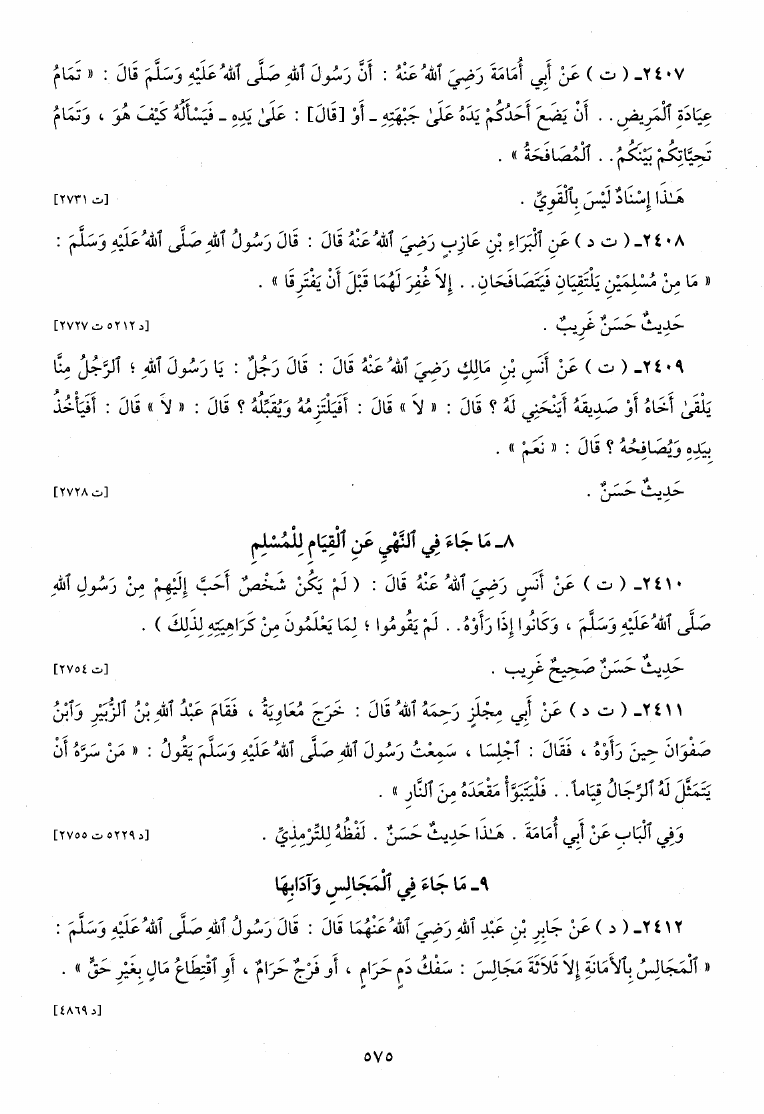 ٢٤٠٧ـ ( ت ) عَنْ أَبِي أُمَامَةَ رَضِيَ ٱللهُ عَنْهُ : أَنَّ رَسُولَ ٱللهِ صَلَّى ٱللهُ عَلَيْهِ وَسَلَّمَ قَالَ : « تَمَامُ
عِيَادَةِ ٱلْمَرِيضِ . . أَنْ يَضَعَ أَحَدُكُمْ يَدَهُ عَلَىٰ جَبْهَتِهِ ـ أَوْ [قَالَ] : عَلَىٰ يَدِهِ ـ فَيَسْأَلُهُ كَيْفَ هُوَ ، وَتَمَامُ
تَحِيَّاتِكُمْ بَيْنَكُمُ . . ٱلْمُصَافَحَةُ » .
هَـٰذَا إِسْنَادٌ لَيْسَ بِٱلْقَوِيِّ . [ت ٢٧٣١]
٢٤٠٨ـ ( ت د ) عَنِ ٱلْبَرَاءِ بْنِ عَازِبٍ رَضِيَ ٱللهُ عَنْهُ قَالَ : قَالَ رَسُولُ ٱللهِ صَلَّى ٱللهُ عَلَيْهِ وَسَلَّمَ :
« مَا مِنْ مُسْلِمَيْنِ يَلْتَقِيَانِ فَيَتَصَافَحَانِ . . إِلاَّ غُفِرَ لَهُمَا قَبْلَ أَنْ يَفْتَرِقَا » .
حَدِيثٌ حَسَنٌ غَرِيبٌ . [د ٥٢١٢ ت ٢٧٢٧]
٢٤٠٩ـ ( ت ) عَنْ أَنَسِ بْنِ مَالِكٍ رَضِيَ ٱللهُ عَنْهُ قَالَ : قَالَ رَجُلٌ : يَا رَسُولَ ٱللهِ ؛ ٱلرَّجُلُ مِنَّا
يَلْقَىٰ أَخَاهُ أَوْ صَدِيقَهُ أَيَنْحَنِي لَهُ ؟ قَالَ : « لاَ » قَالَ : أَفَيَلْتَزِمُهُ وَيُقَبِّلُهُ ؟ قَالَ : « لاَ » قَالَ : أَفَيَأْخُذُ
بِيَدِهِ وَيُصَافِحُهُ ؟ قَالَ : « نَعَمْ » .
حَدِيثٌ حَسَنٌ . [ت ٢٧٢٨]
٨ـ مَا جَاءَ فِي ٱلنَّهْيِ عَنِ ٱلْقِيَامِ لِلْمُسْلِمِ
٢٤١٠ـ ( ت ) عَنْ أَنَسٍ رَضِيَ ٱللهُ عَنْهُ قَالَ : ( لَمْ يَكُنْ شَخْصٌ أَحَبَّ إِلَيْهِمْ مِنْ رَسُولِ ٱللهِ
صَلَّى ٱللهُ عَلَيْهِ وَسَلَّمَ ، وَكَانُوا إِذَا رَأَوْهُ . . لَمْ يَقُومُوا ؛ لِمَا يَعْلَمُونَ مِنْ كَرَاهِيَتِهِ لِذَلِكَ ) .
حَدِيثٌ حَسَنٌ صَحِيحٌ غَرِيب . [ت ٢٧٥٤]
٢٤١١ـ ( ت د ) عَنْ أَبِي مِجْلَزٍ رَحِمَهُ ٱللهُ قَالَ : خَرَجَ مُعَاوِيَةُ ، فَقَامَ عَبْدُ ٱللهِ بْنُ ٱلزُّبَيْرِ وَٱبْنُ
صَفْوَانَ حِينَ رَأَوْهُ ، فَقَالَ : ٱجْلِسَا ، سَمِعْتُ رَسُولَ ٱللهِ صَلَّى ٱللهُ عَلَيْهِ وَسَلَّمَ يَقُولُ : « مَنْ سَرَّهُ أَنْ
يَتَمَثَّلَ لَهُ ٱلرِّجَالُ قِيَاماً . . فَلْيَتَبَوَّأْ مَقْعَدَهُ مِنَ ٱلنَّارِ » .
وَفِي ٱلْبَابِ عَنْ أَبِي أُمَامَةَ . هَـٰذَا حَدِيثٌ حَسَنٌ . لَفْظُهُ لِلتِّرْمِذِيِّ . [د ٥٢٢٩ ت ٢٧٥٥]
٩ـ مَا جَاءَ فِي ٱلْمَجَالِسِ وَآدَابِهَا
٢٤١٢ـ ( د ) عَنْ جَابِرِ بْنِ عَبْدِ ٱللهِ رَضِيَ ٱللهُ عَنْهُمَا قَالَ : قَالَ رَسُولُ ٱللهِ صَلَّى ٱللهُ عَلَيْهِ وَسَلَّمَ :
« ٱلْمَجَالِسُ بِٱلأَمَانَةِ إِلاَّ ثَلاَثَةَ مَجَالِسَ : سَفْكُ دَمٍ حَرَامٍ ، أَو فَرْجٌ حَرَامٌ ، أَوِ ٱقْتِطَاعُ مَالٍ بِغَيْرِ حَقٍّ » .
[د ٤٨٦٩]
٥٧٥